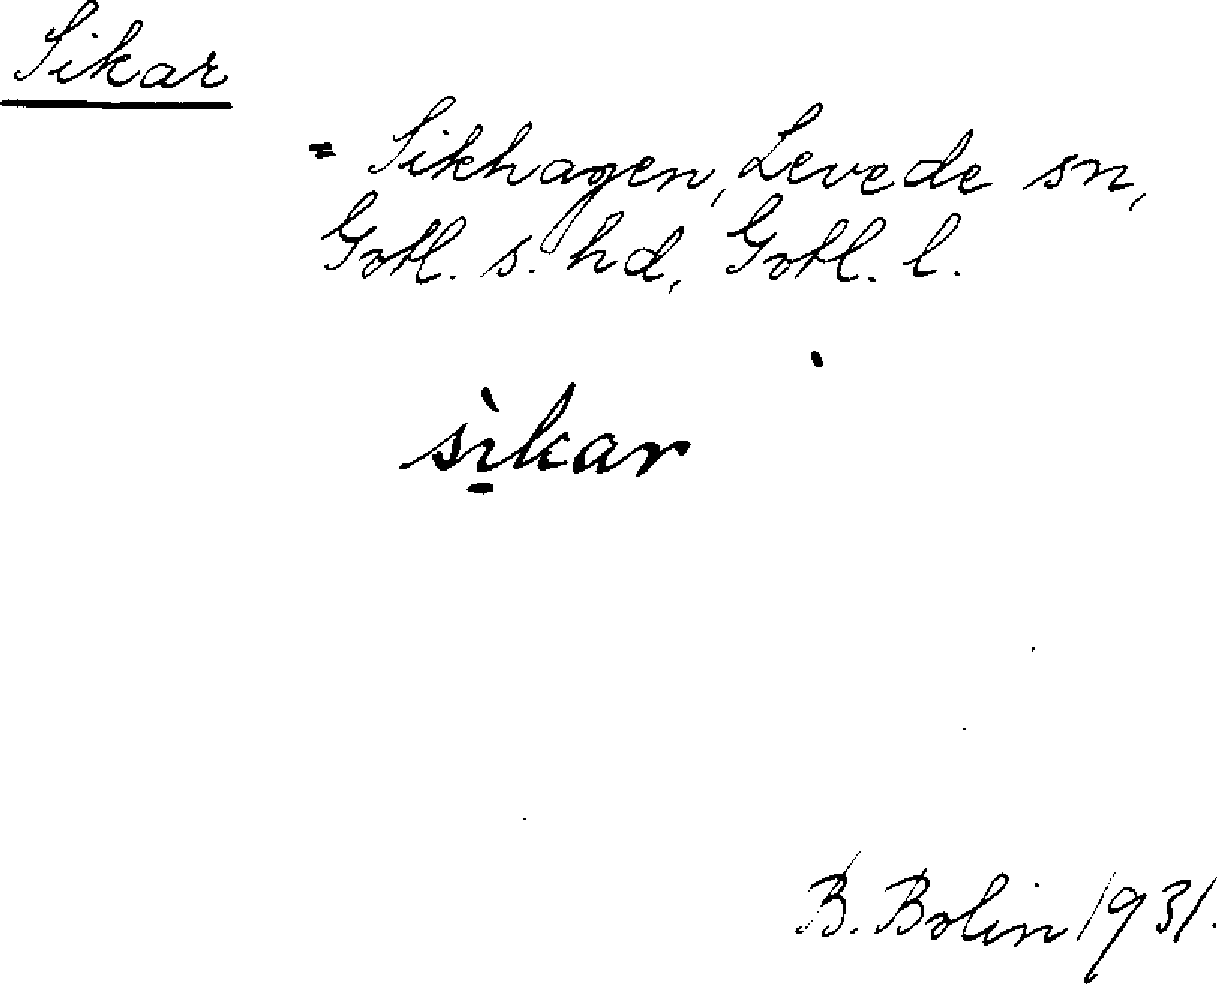 Sikar
= Sikhagen, Levede sn,
Gotl. s. hd, Gotl. l.
sìkar
B. Bolin 1931.